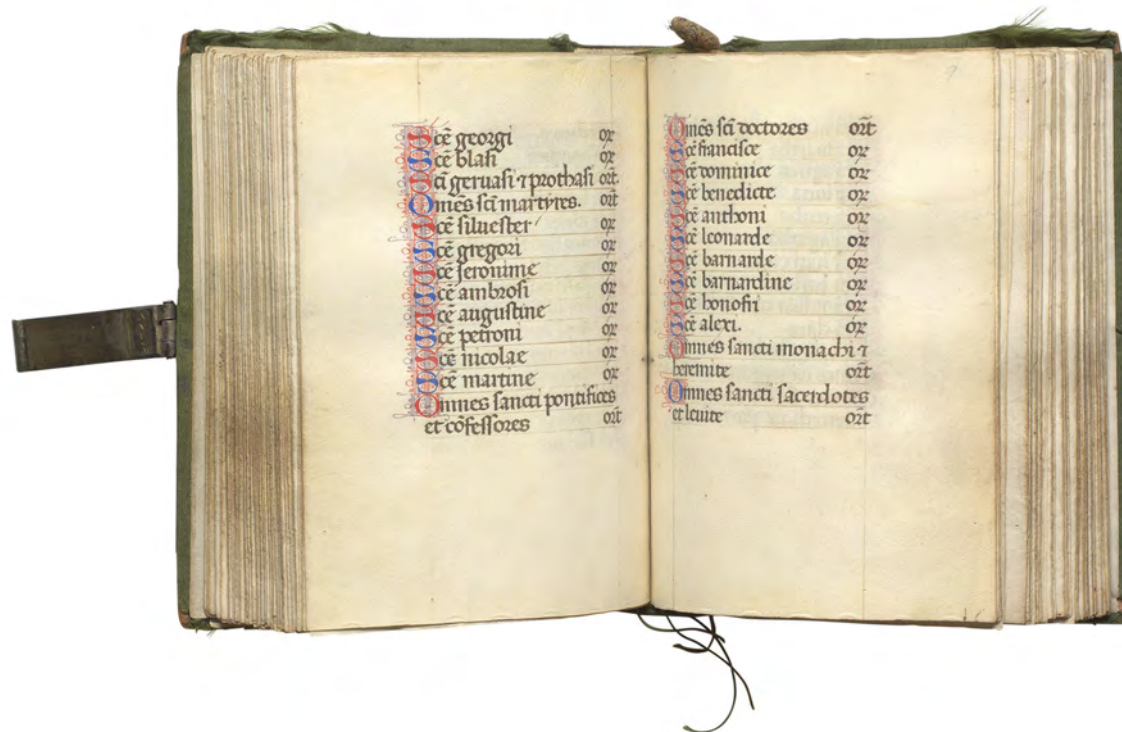 Scē georgi oꝝ
Scē blasi oꝝ
Scī geruasi ⁊ prothasi oꝛt̄.
Omēs scī martyres. oꝛt̄
Scē siluester oꝝ
Scē gregori oꝝ
Scē ieronime oꝝ
Scē ambrosi oꝝ
Scē augustine oꝝ
Scē petroni oꝝ
Scē nicolae oꝝ
Scē martine oꝝ
Omnes sancti pontifices
et cōfessores oꝛt̄
Omēs scī doctores oꝛt̄
Scē francisce oꝝ
Scē dominice oꝝ
Scē benedicte oꝝ
Scē anthoni oꝝ
Scē leonarde oꝝ
Scē barnarde oꝝ
Scē barnardine oꝝ
Scē honofri oꝝ
Scē alexi. oꝝ
Omnes sancti monachi ⁊
heremite oꝛt̄
Omnes sancti sacerdotes
et leuite oꝛt̄